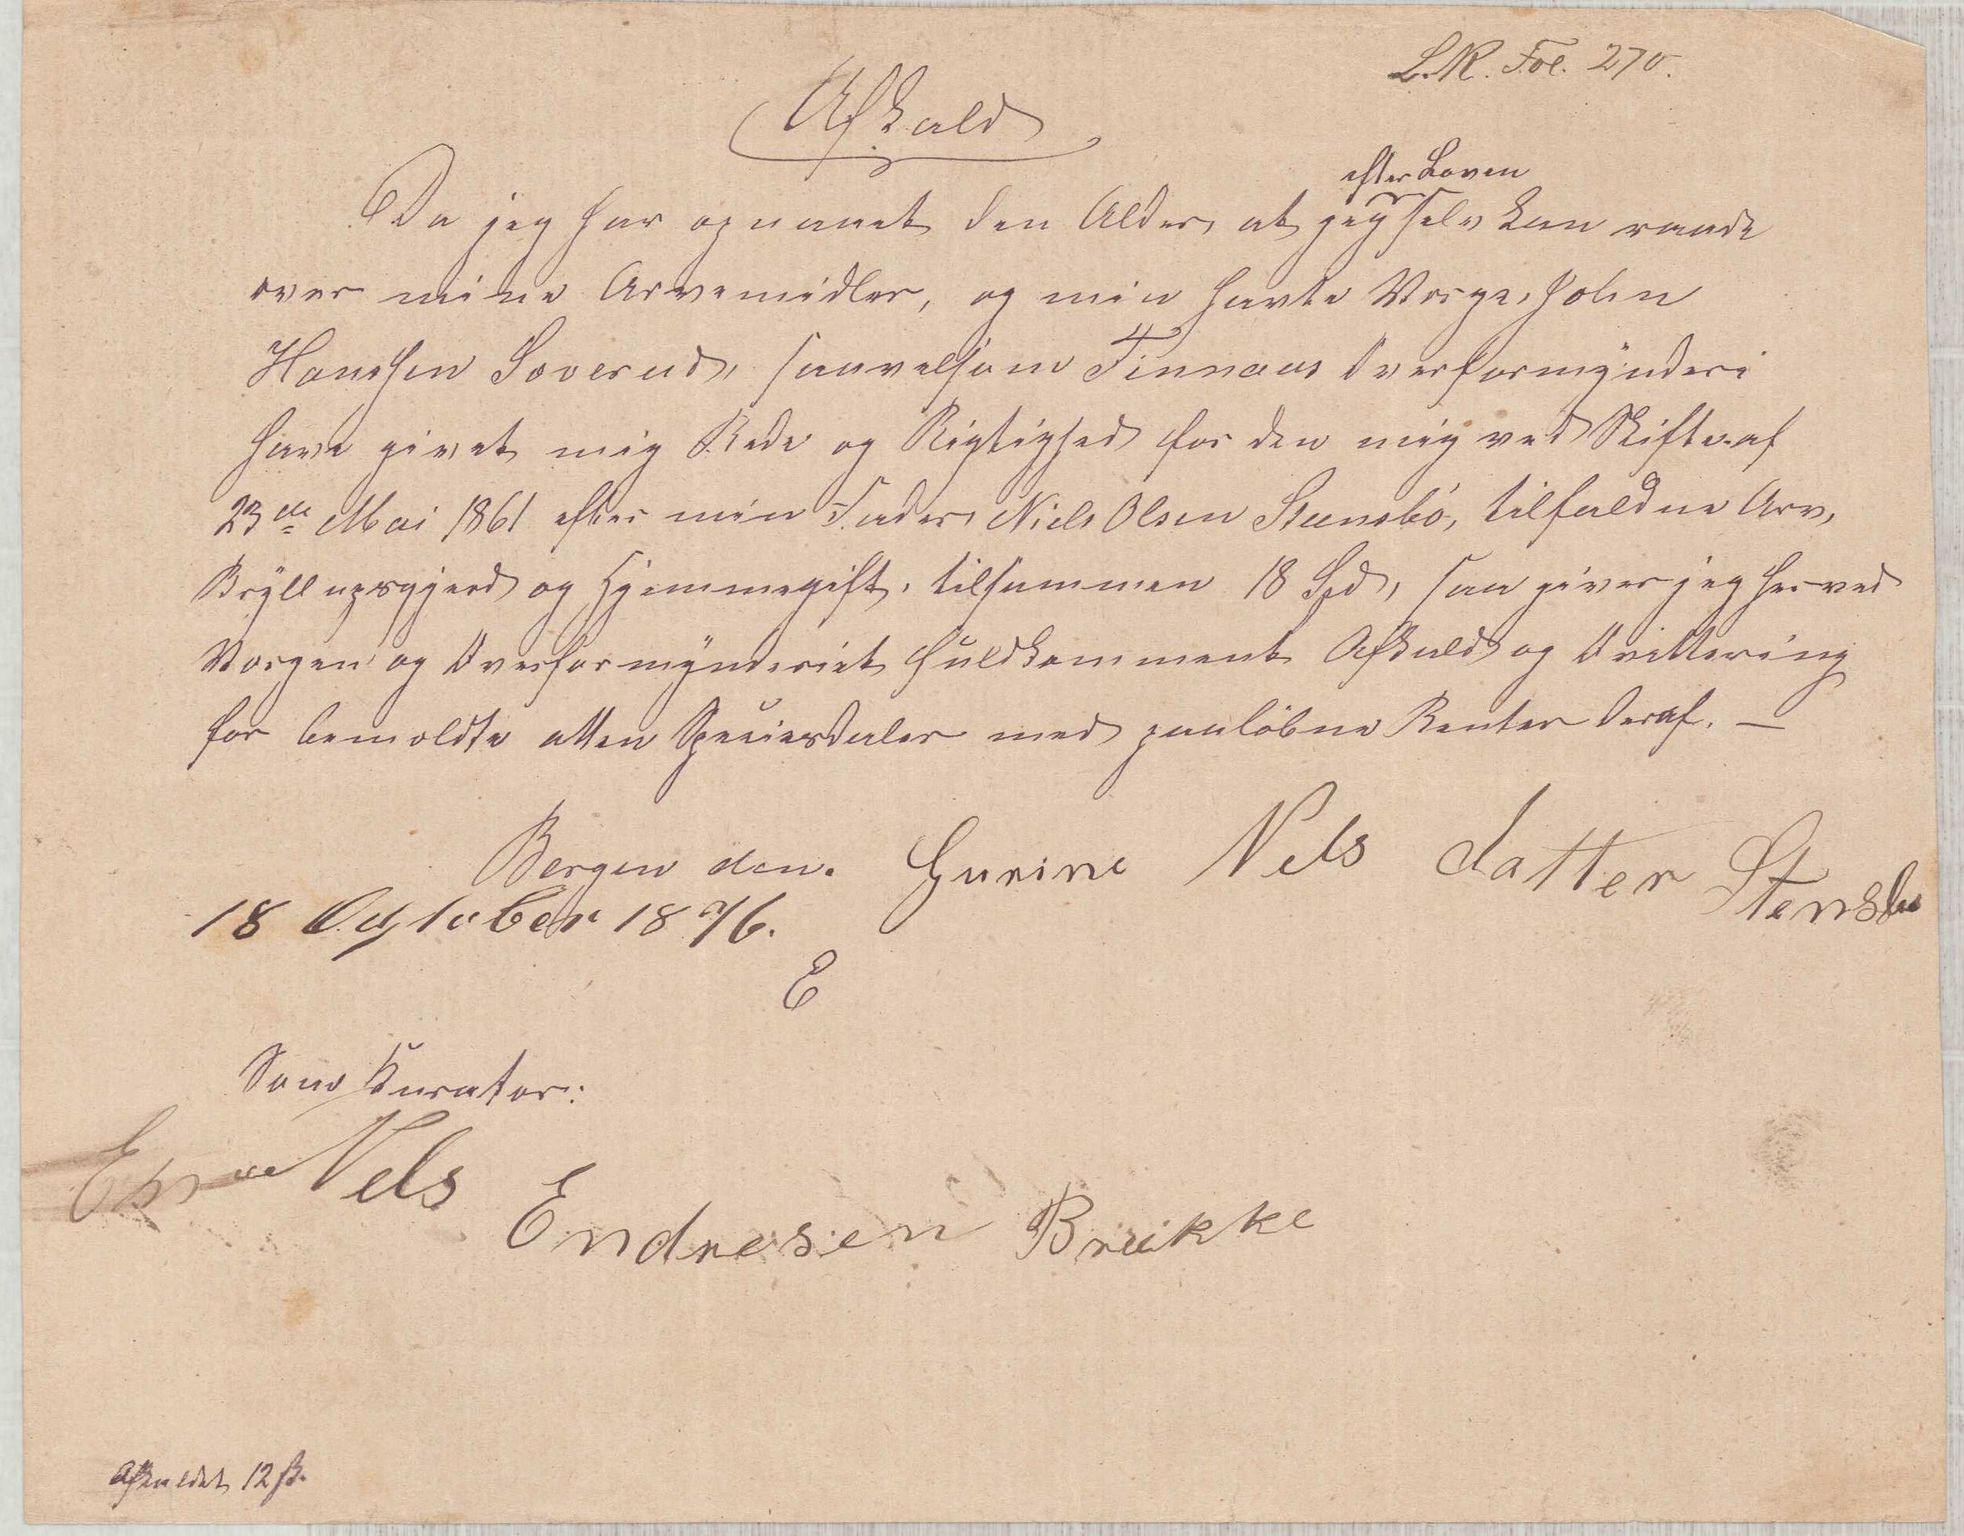 L.R. Fol. 270.
Afkald
efter Loven
Da jeg har opnaaet den Alder, at jeg selv kan raade
over mine Arvemidler, og min havte Værge, John
Hansen Loverud, saavelsom Finnaas Overformynderi
have givet mig Rede og Rigtighed for den mig ved Skifte af
23de Mai 1861 efter min Fader, Niels Olsen Steensbö, tilfaldne Arv,
Bryllupsgjerd og Hjemmegift, tilsammen 18 Spd, saa giver jeg herved
Værgen og Overformynderiet fuldkomment Afkald og Qvittering
for bemeldte atten Speciesdaler med paalöbne Renter deraf. —
Bergen den. Gurine Nels datter Stensbø
18 Ogtober 1876.
E
Som Kurator:
Nels
Endresen Brække
Afkaldet 12 ß.